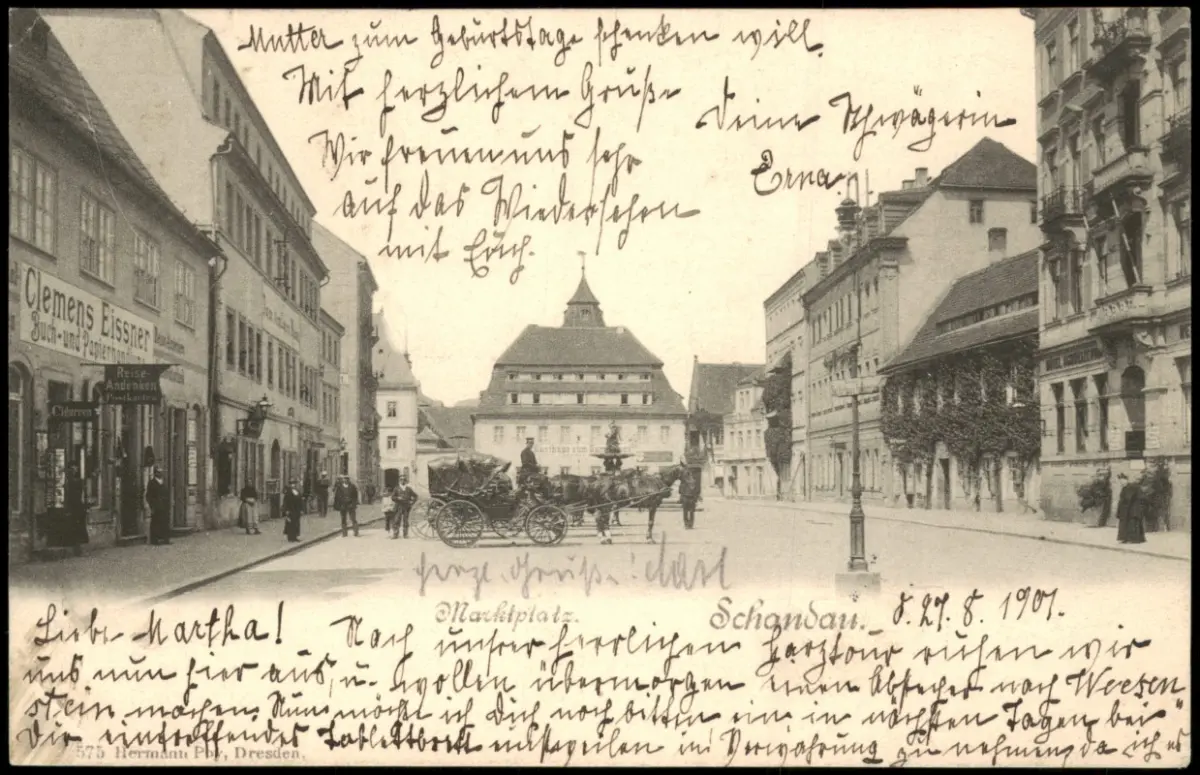 Mutter zum Geburtstage schenken will.
Mit herzlichem Gruße
Deine Schwägerin
Erna.
Wir freuen uns sehr
auf das Wiedersehen
mit Euch.
Clemens Eissner
Buch- und Papierhandlung
Reise-
Andenken
Postkarten
Cigarren
herzl. Gruß! Karl
Marktplatz.
Schandau. d. 27. 8. 1901.
Liebe Martha! Nach unsrer herrlichen Harztour ruhen wir
uns nun hier aus, u. wollen übermorgen einen Abstecher nach Weesen
stein machen. Nun möchte ich Dich noch bitten ein in nächsten Tagen bei
Dir eintreffendes Tablettbrett einstweilen in Verwahrung zu nehmen, da ich es
575 Hermann Poy, Dresden.